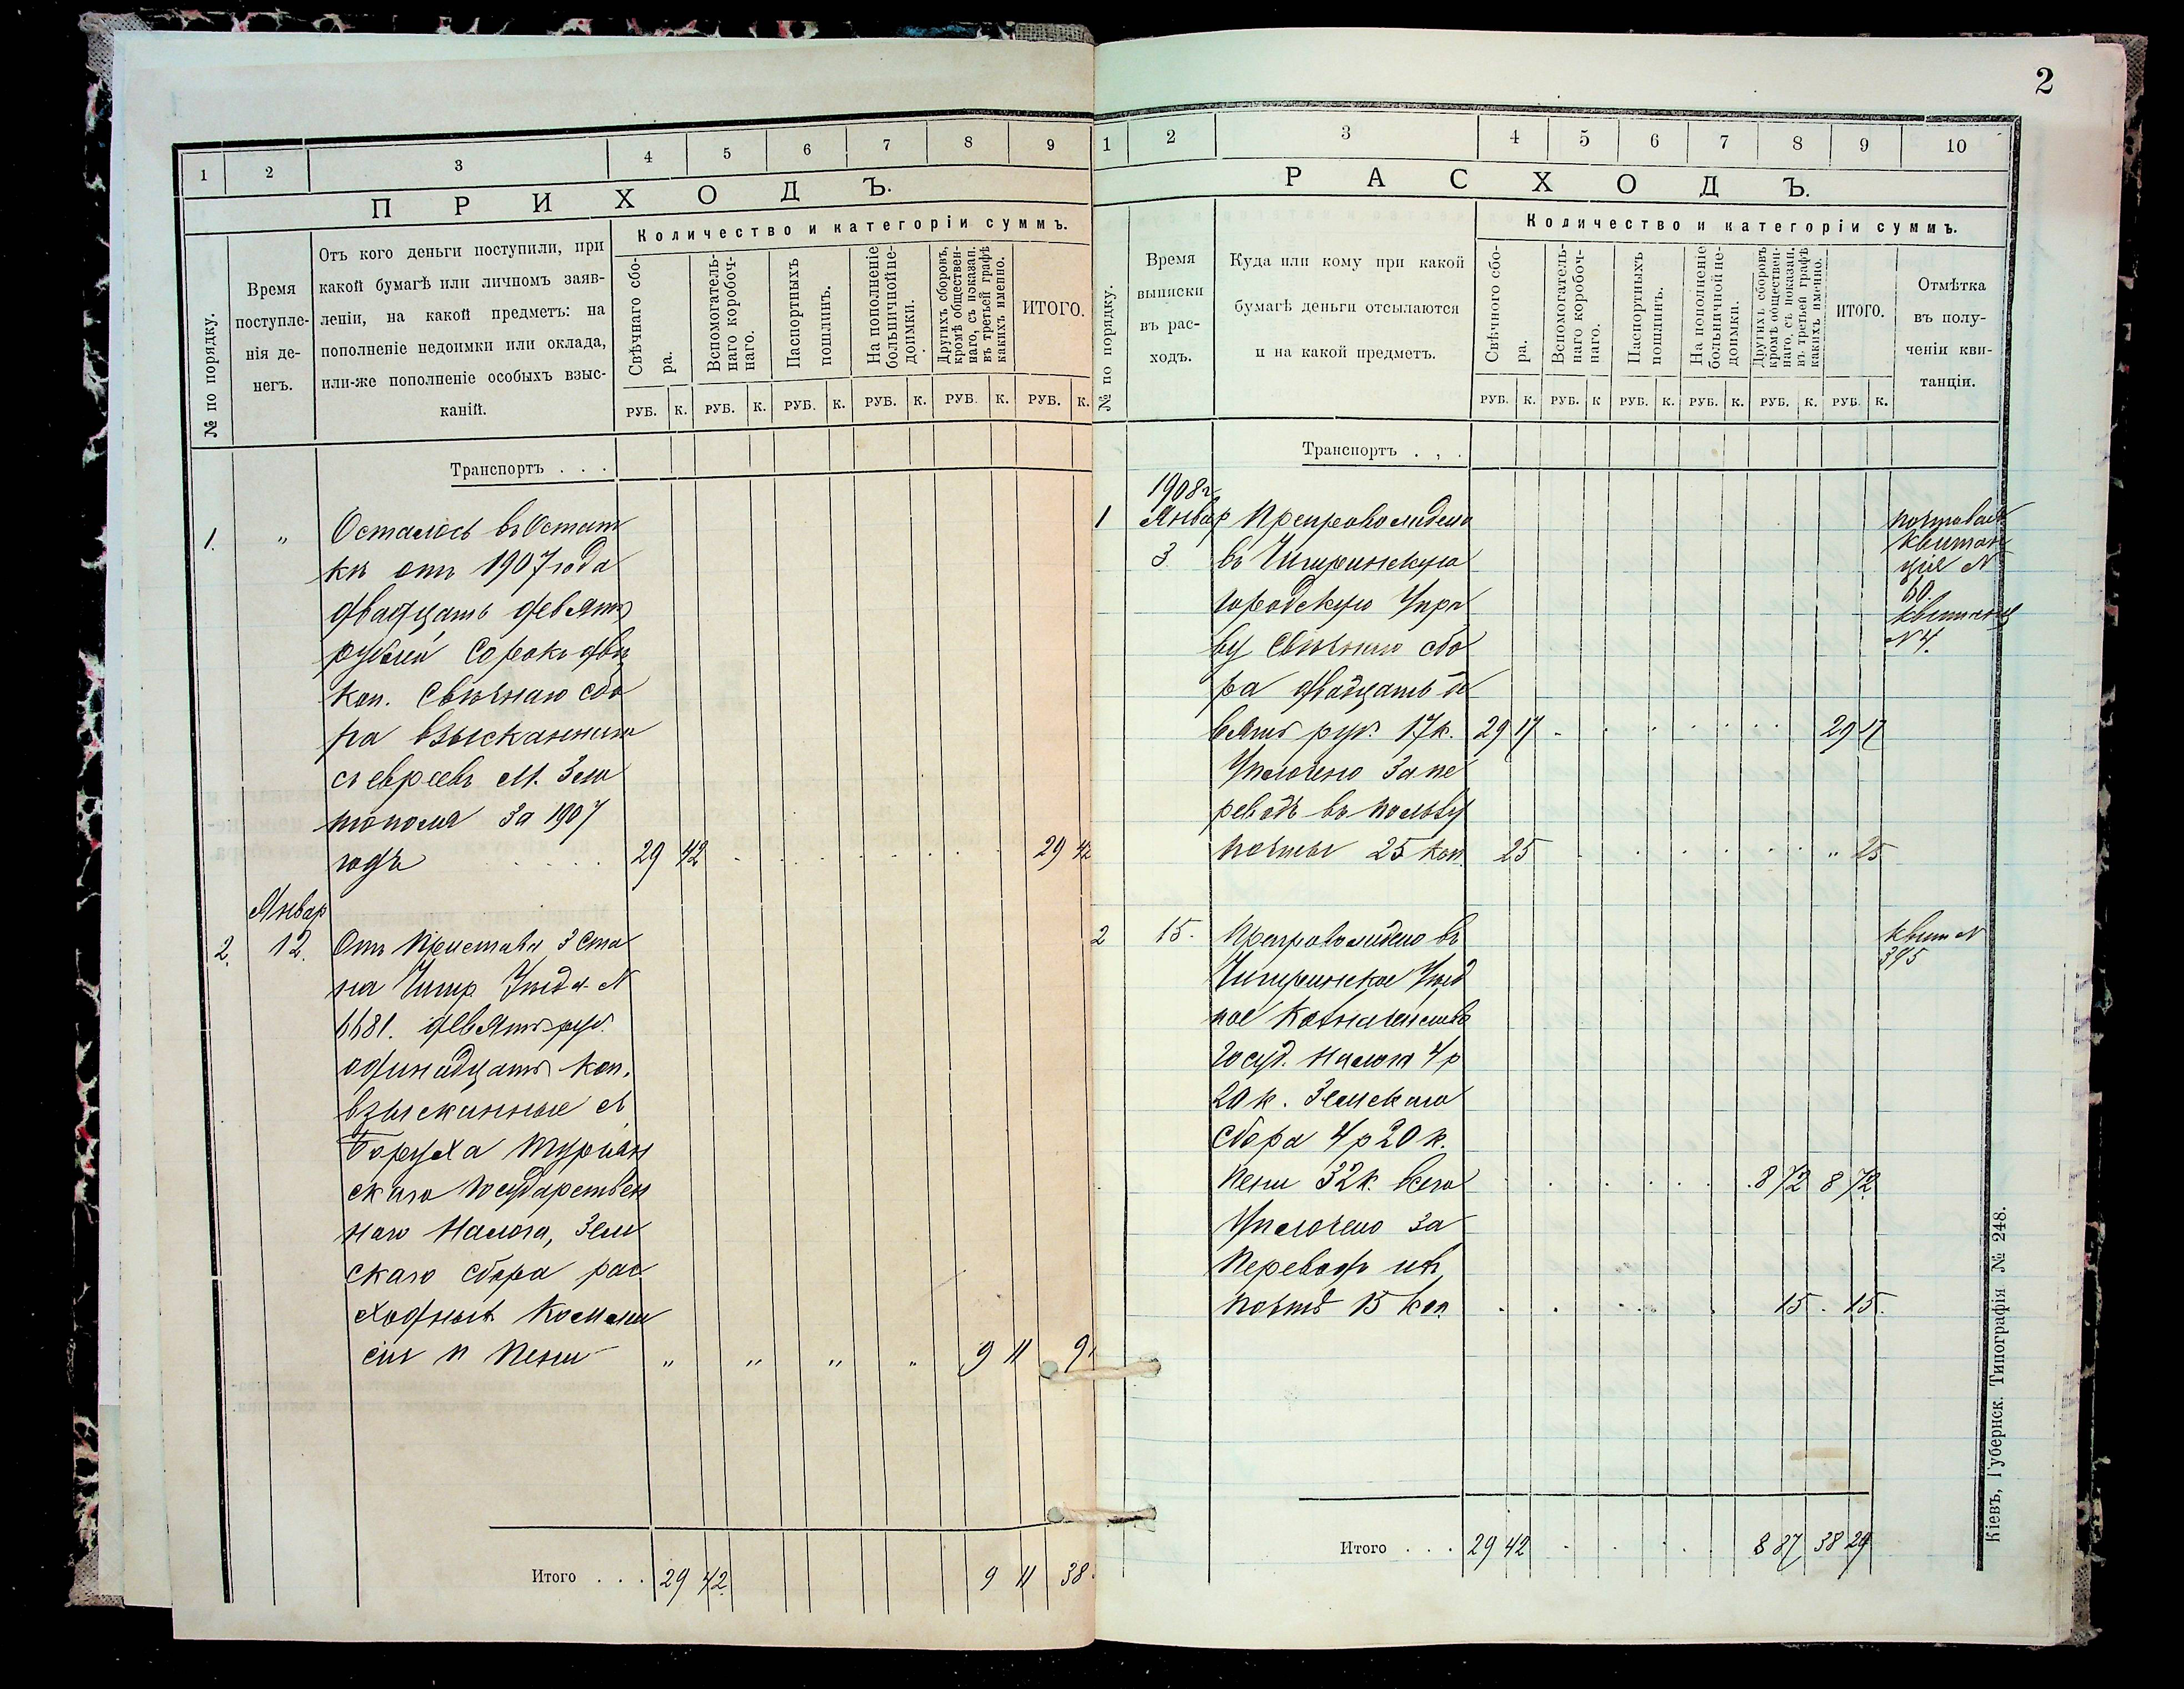 2
1 2 3 4 5 6 7 8 9
ПРИХОДЪ.
№ по порядку.
Время
поступле-
нія де-
негъ.
Отъ кого деньги поступили, при
какой бумагѣ или личномъ заяв-
леніи, на какой предметъ: на
пополненіе недоимки или оклада,
или-же пополненіе особыхъ взыс-
каній.
Количество и категоріи суммъ.
Свѣчнаго сбо-
ра.
Вспомогатель-
наго коробоч-
наго.
Паспортныхъ
пошлинъ.
На пополненіе
больничной не-
доимки.
Другихъ сборовъ,
кромѣ обществен-
наго, съ показан.
въ третьей графѣ
какихъ именно.
ИТОГО.
РУБ. К. РУБ. К. РУБ. К. РУБ. К. РУБ. К. РУБ. К.
Транспортъ . . .
1. „ Осталось въ Остат
кѣ отъ 1907 года
двадцать девять
рублей Сорокъ двѣ
коп. Свѣчнаго сбо
ра взысканнаго
съ евреевъ М. Зла
тополя за 1907
годъ 29 42 29 42
Январ
2. 12. Отъ Пристава 3 Ста
на Чигир. Уѣзда №
1681. девять руб.
одинадцать коп.
взысканные съ
Боруха Туриан
скаго Государствен
наго Налога, Зем
скаго сбора рас
ходныхъ Коммис
сіи и Пени „ „ „ „ 9 11 9
Итого . . . 29 42 9 11 38
1 2 3 4 5 6 7 8 9 10
РАСХОДЪ.
№ по порядку.
Время
выписки
въ рас-
ходъ.
Куда или кому при какой
бумагѣ деньги отсылаются
и на какой предметъ.
Количество и категоріи суммъ.
Свѣчного сбо-
ра.
Вспомогатель-
наго коробоч-
наго.
Паспортныхъ
пошлинъ.
На пополненіе
больничной не-
доимки.
Другихъ сборовъ
кромѣ обществен-
наго, съ показан.
въ третьей графѣ
какихъ именно.
ИТОГО.
Отмѣтка
въ полу-
ченіи кви-
танціи.
РУБ. К. РУБ. К РУБ. К. РУБ. К. РУБ. К. РУБ. К.
Транспортъ . , .
1908 г.
1 Январ Препровождено
3 въ Чигиринскую
городскую Упра
ву Свѣчнаго сбо
ра двадцать де
вять руб. 17 к. 29 17 29 17
Уплочено За пе
реводъ въ пользу
почты 25 коп. 25 „ 25
почтовая
Квитан
ція №
60.
квитанц
№ 4.
2 15. Препровождено въ
Чигиринское Уѣзд
ное Казначейство
Госуд. Налога 4 р
20 к. Земскаго
сбора 4 р 20 к.
Пени 32 к. всего 8 72 8 72
Уплочено за
Переводъ ихъ
почтѣ 15 коп. 15 . 15.
Квит №
395
Итого . . . 29 42 8 87 38 29
Кіевъ, Губернск. Типографія № 248.